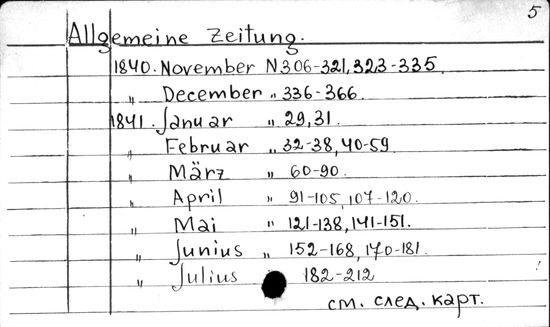 5
Allgemeine Zeitung.
1840. November N306-321, 323-335.
„ December „ 336-366.
1841. Januar „ 29, 31.
„ Februar „ 32-38, 40-59
„ März „ 60-90.
„ April „ 91-105, 107-120.
„ Mai „ 121-138, 141-151.
„ Junius „ 152-168, 170-181.
„ Julius 182-212
см. след. карт.